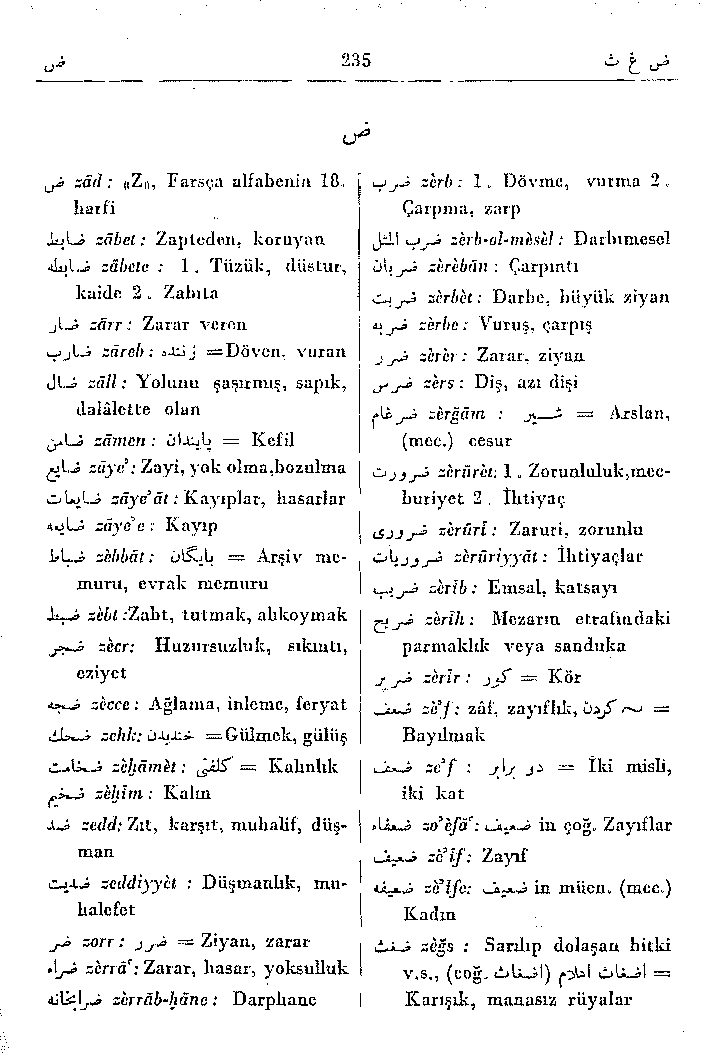 ض 235 ض غ ث
ض
ض zād : «Z», Farsça alfabenin 18.
harfi
ضابط zābet : Zapteden, koruyan
ضابطه zābete : 1. Tüzük, düstur,
kaide 2. Zabıta
ضار zārr : Zarar veren
ضارب zāreb : زننده =Döven, vuran
ضال zāll : Yolunu şaşırmış, sapık,
dalâlette olan
ضامن zāmen : پایندان = Kefil
ضایع zāye' : Zayi, yok olma,bozulma
ضایعات zāye'āt : Kayıplar, hasarlar
ضایعه zāye'e : Kayıp
ضباط zèbbāt : بایگان = Arşiv me-
muru, evrak memuru
ضبط zèbt :Zabt, tutmak, alıkoymak
ضجر zècr: Huzursuzluk, sıkıntı,
eziyet
ضجه zècce : Ağlama, inleme, feryat
ضحك zehk: خندیدن =Gülmek, gülüş
ضخامت zèḫāmèt : كلفتی = Kalınlık
ضخیم zèḫīm : Kalın
ضد zedd: Zıt, karşıt, muhalif, düş-
man
ضدیت zeddiyyèt : Düşmanlık, mu-
halefet
ضر zorr : ضرر = Ziyan, zarar
ضراء zèrrā': Zarar, hasar, yoksulluk
ضرابخانه zèrrāb-ḫāne : Darphane
ضرب zèrb : 1. Dövme, vurma 2.
Çarpma, zarp
ضرب المثل zèrb-ol-mèsèl : Darbımesel
ضربان zèrèbān : Çarpıntı
ضربت zèrbèt : Darbe, büyük ziyan
ضربه zèrbe : Vuruş, çarpış
ضرر zèrèr : Zarar, ziyan
ضرس zèrs : Diş, azı dişi
ضرغام zèrğām : شیر = Arslan,
(mec.) cesur
ضرورت zèrūrèt: 1. Zorunluluk,mec-
buriyet 2. İhtiyaç
ضروری zèrūrī : Zaruri, zorunlu
ضروریات zèrūriyyāt : İhtiyaçlar
ضریب zèrīb : Emsal, katsayı
ضریح zèrīh : Mezarın etrafındaki
parmaklık veya sanduka
ضریر zèrīr : كور = Kör
ضعف zè'f : zâf, zayıflık, ~ كردن =
Bayılmak
ضعف ze'f : دو برابر = İki misli,
iki kat
ضعفاء zo'èfā' : ضعیف in çoğ. Zayıflar
ضعیف zè'īf : Zayıf
ضعیفه zè'īfe: ضعیف in müen. (mec.)
Kadın
ضغث zèğs : Sarılıp dolaşan bitki
v.s., (çoğ. اضغاث) اضغاث احلام =
Karışık, manasız rüyalar